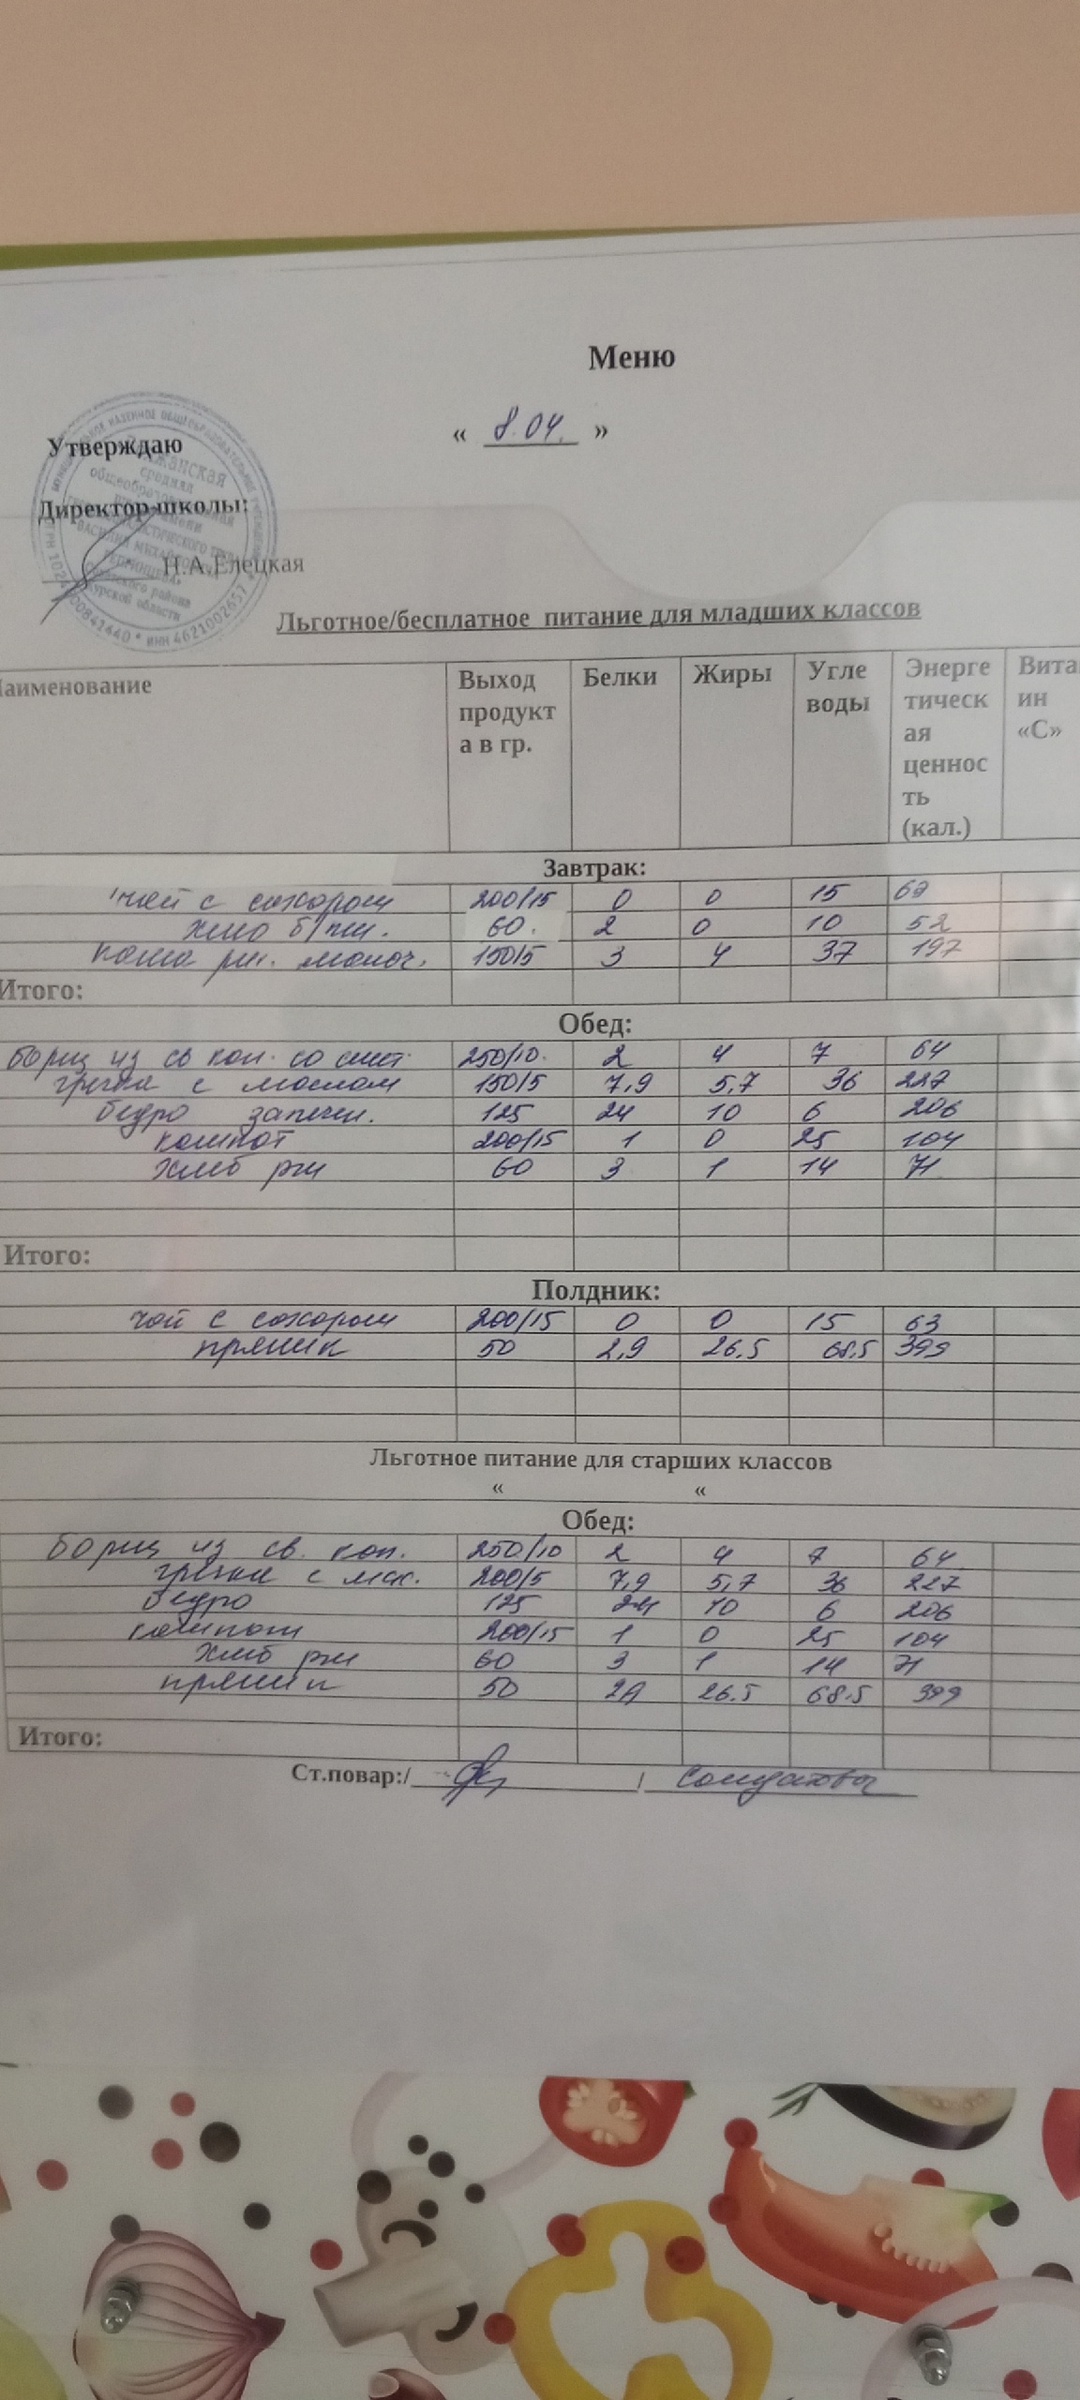 Меню
« 8.04. »
Утверждаю
Директор школы:
Н.А.Елецкая
Льготное/бесплатное питание для младших классов
Наименование Выход продукт а в гр. Белки Жиры Угле воды Энерге тическ ая ценнос ть (кал.) Вита ин «С»
Завтрак:
чай с сахаром 200/15 0 0 15
хлеб б/пш. 60. 2 0 10 52
каша рис. молоч. 150/5 3 4 37 197
Итого:
Обед:
борщ из св кап. со смет. 250/10. 2 4 7 64
гречка с маслом 150/5 7,9 5,7 36 227
бедро запечен. 125 24 10 6 206
компот 200/15 1 0 25 104
хлеб рж 60 3 1 14 71
Итого:
Полдник:
чай с сахаром 200/15 0 0 15 63
пряник 50 2,9 26.5 68.5 399
Льготное питание для старших классов
« «
Обед:
борщ из св. кап. 250/10 2 4 7 64
гречка с мас. 200/5 7,9 5,7 36 227
бедро 125 24 10 6 206
компот 200/15 1 0 25 104
хлеб рж 60 3 1 14 71
пряник 50 26.5 68.5 399
Итого:
Ст.повар:/ / Солдатова